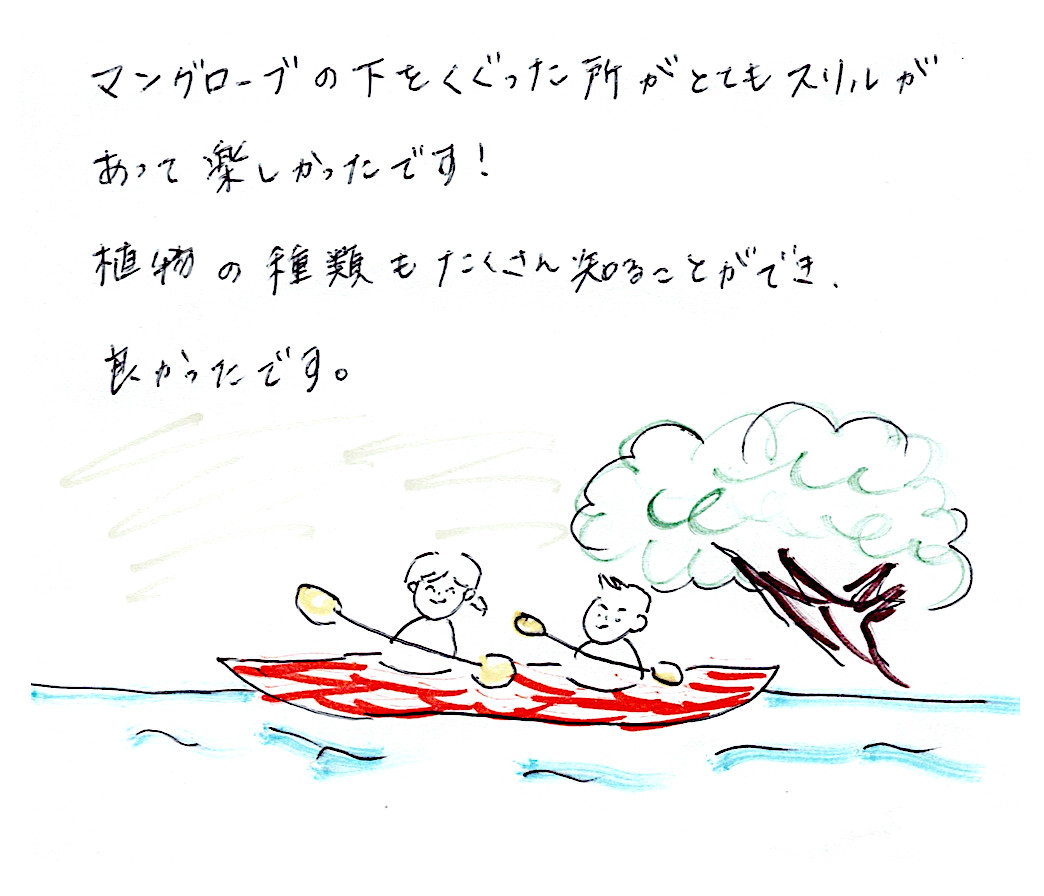 マングローブの下をくぐった所がとてもスリルが
あって楽しかったです!
植物の種類もたくさん知ることができ、
良かったです。